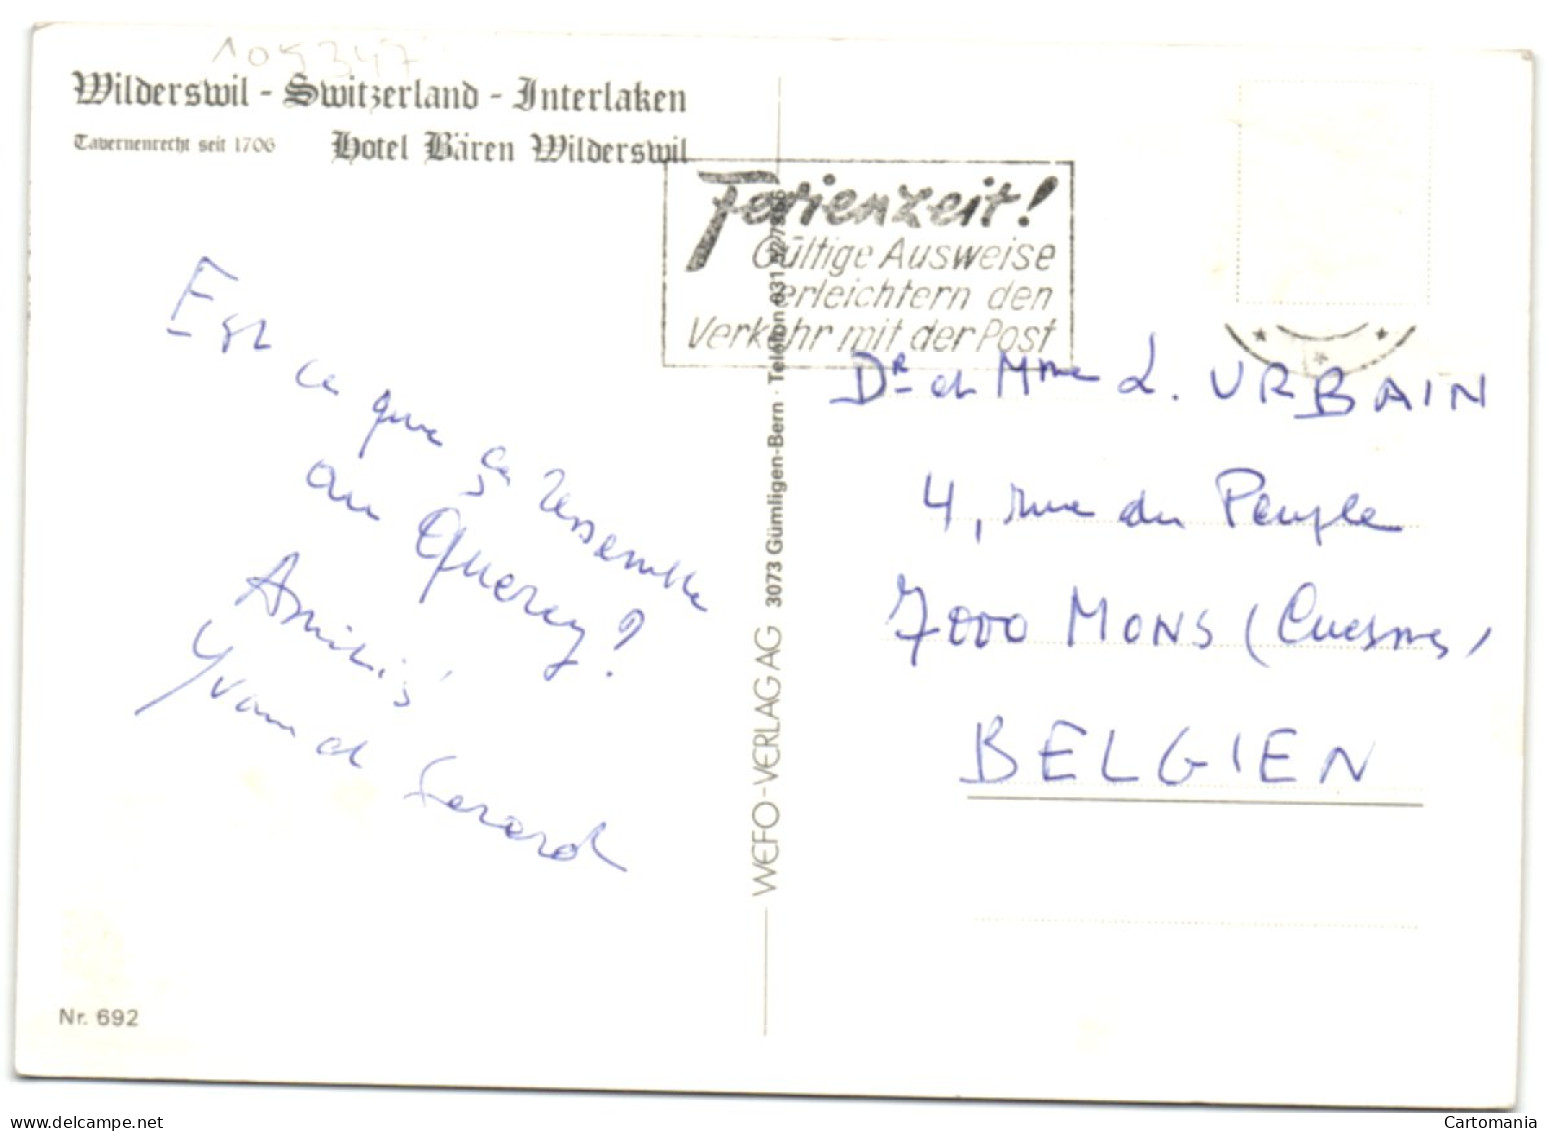 1095347
Wilderswil - Switzerland - Interlaken
Tavernenrecht seit 1706 Hotel Bären Wilderswil
Ferienzeit!
Gültige Ausweise
erleichtern den
Verkehr mit der Post
Est ce que ça ressemble
au Quercy?
Amitiés
Yvan et Gerard
Dr et Mme L. URBAIN
4, rue du Peuple
7000 MONS (Cuesmes)
BELGIEN
WEFO-VERLAG AG 3073 Gümligen-Bern · Telefon 031
Nr. 692
Cartomania